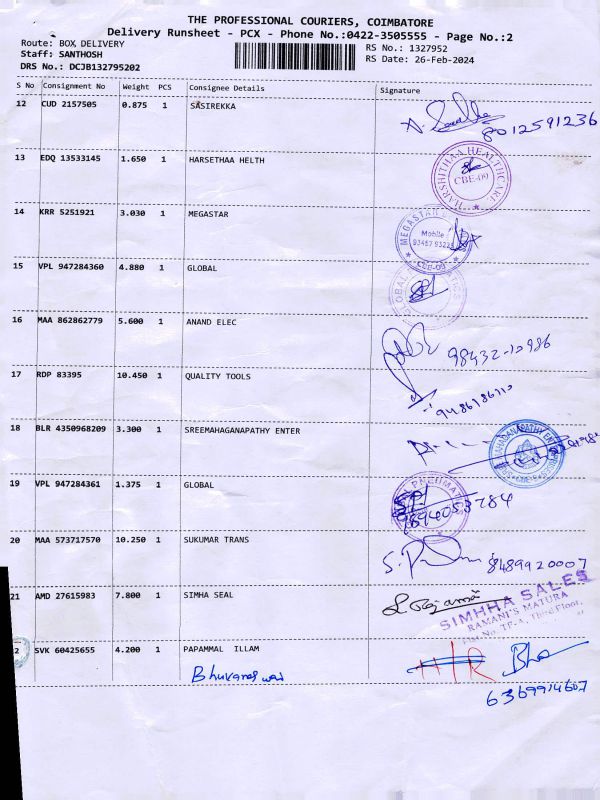 THE PROFESSIONAL COURIERS, COIMBATORE
Delivery Runsheet - PCX - Phone No.:0422-3505555 - Page No.:2
Route: BOX DELIVERY
RS No.: 1327952
Staff: SANTHOSH
RS Date: 26-Feb-2024
DRS No.: DCJB132795202
S No Consignment No Weight PCS Consignee Details Signature
12 CUD 2157505 0.875 1 SASIREKKA
8012591236
13 EDQ 13533145 1.650 1 HARSETHAA HELTH
HARSHITHAA HEALTHCARE
CBE-09
14 KRR 5251921 3.030 1 MEGASTAR
MEGASTAR
Mobile
CBE-09
15 VPL 947284360 4.880 1 GLOBAL
GLOBAL
16 MAA 862862779 5.600 1 ANAND ELEC
98432-10986
17 RDP 83395 10.450 1 QUALITY TOOLS
18 BLR 4350968209 3.300 1 SREEMAHAGANAPATHY ENTER
19 VPL 947284361 1.375 1 GLOBAL
9894053784
20 MAA 573717570 10.250 1 SUKUMAR TRANS
8489920007
21 AMD 27615983 7.800 1 SIMHA SEAL
SIMHHA SALES
RAMANI'S MATURA
TF-A, Third Floor,
2 SVK 60425655 4.200 1 PAPAMMAL ILLAM
Bhuvaneswari
6369914607